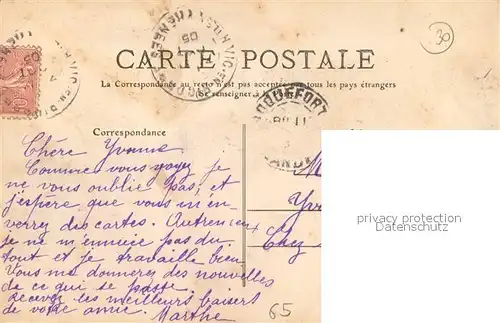 30
CARTE POSTALE
La Correspondance au recto n'est pas acceptée par tous les pays étrangers
(Se renseigner à la
ROQUEFORT
LANDES
Correspondance
Chère Yvonne
Comme vous voyez je
ne vous oublie pas, et
j'espère que vous m'en
verrez des cartes.
je ne m'ennuie pas du
tout et je travaille bien
Vous me donnerez des nouvelles
de ce qui se passe.
Recevez les meilleurs baisers
de votre amie. Marthe
M
Yv
Chez
privacy protection
Datenschutz
65